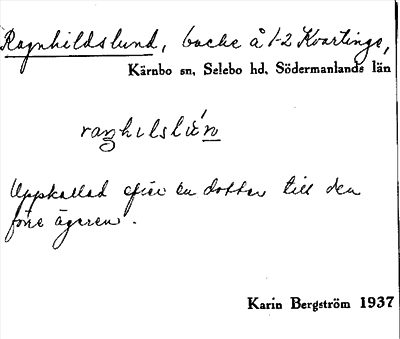 Ragnhildslund, backe å 1-2 Kvartinge,
Kärnbo sn, Selebo hd, Södermanlands län
Uppkallad efter en dotter till den
förre ägaren.
Karin Bergström 1937